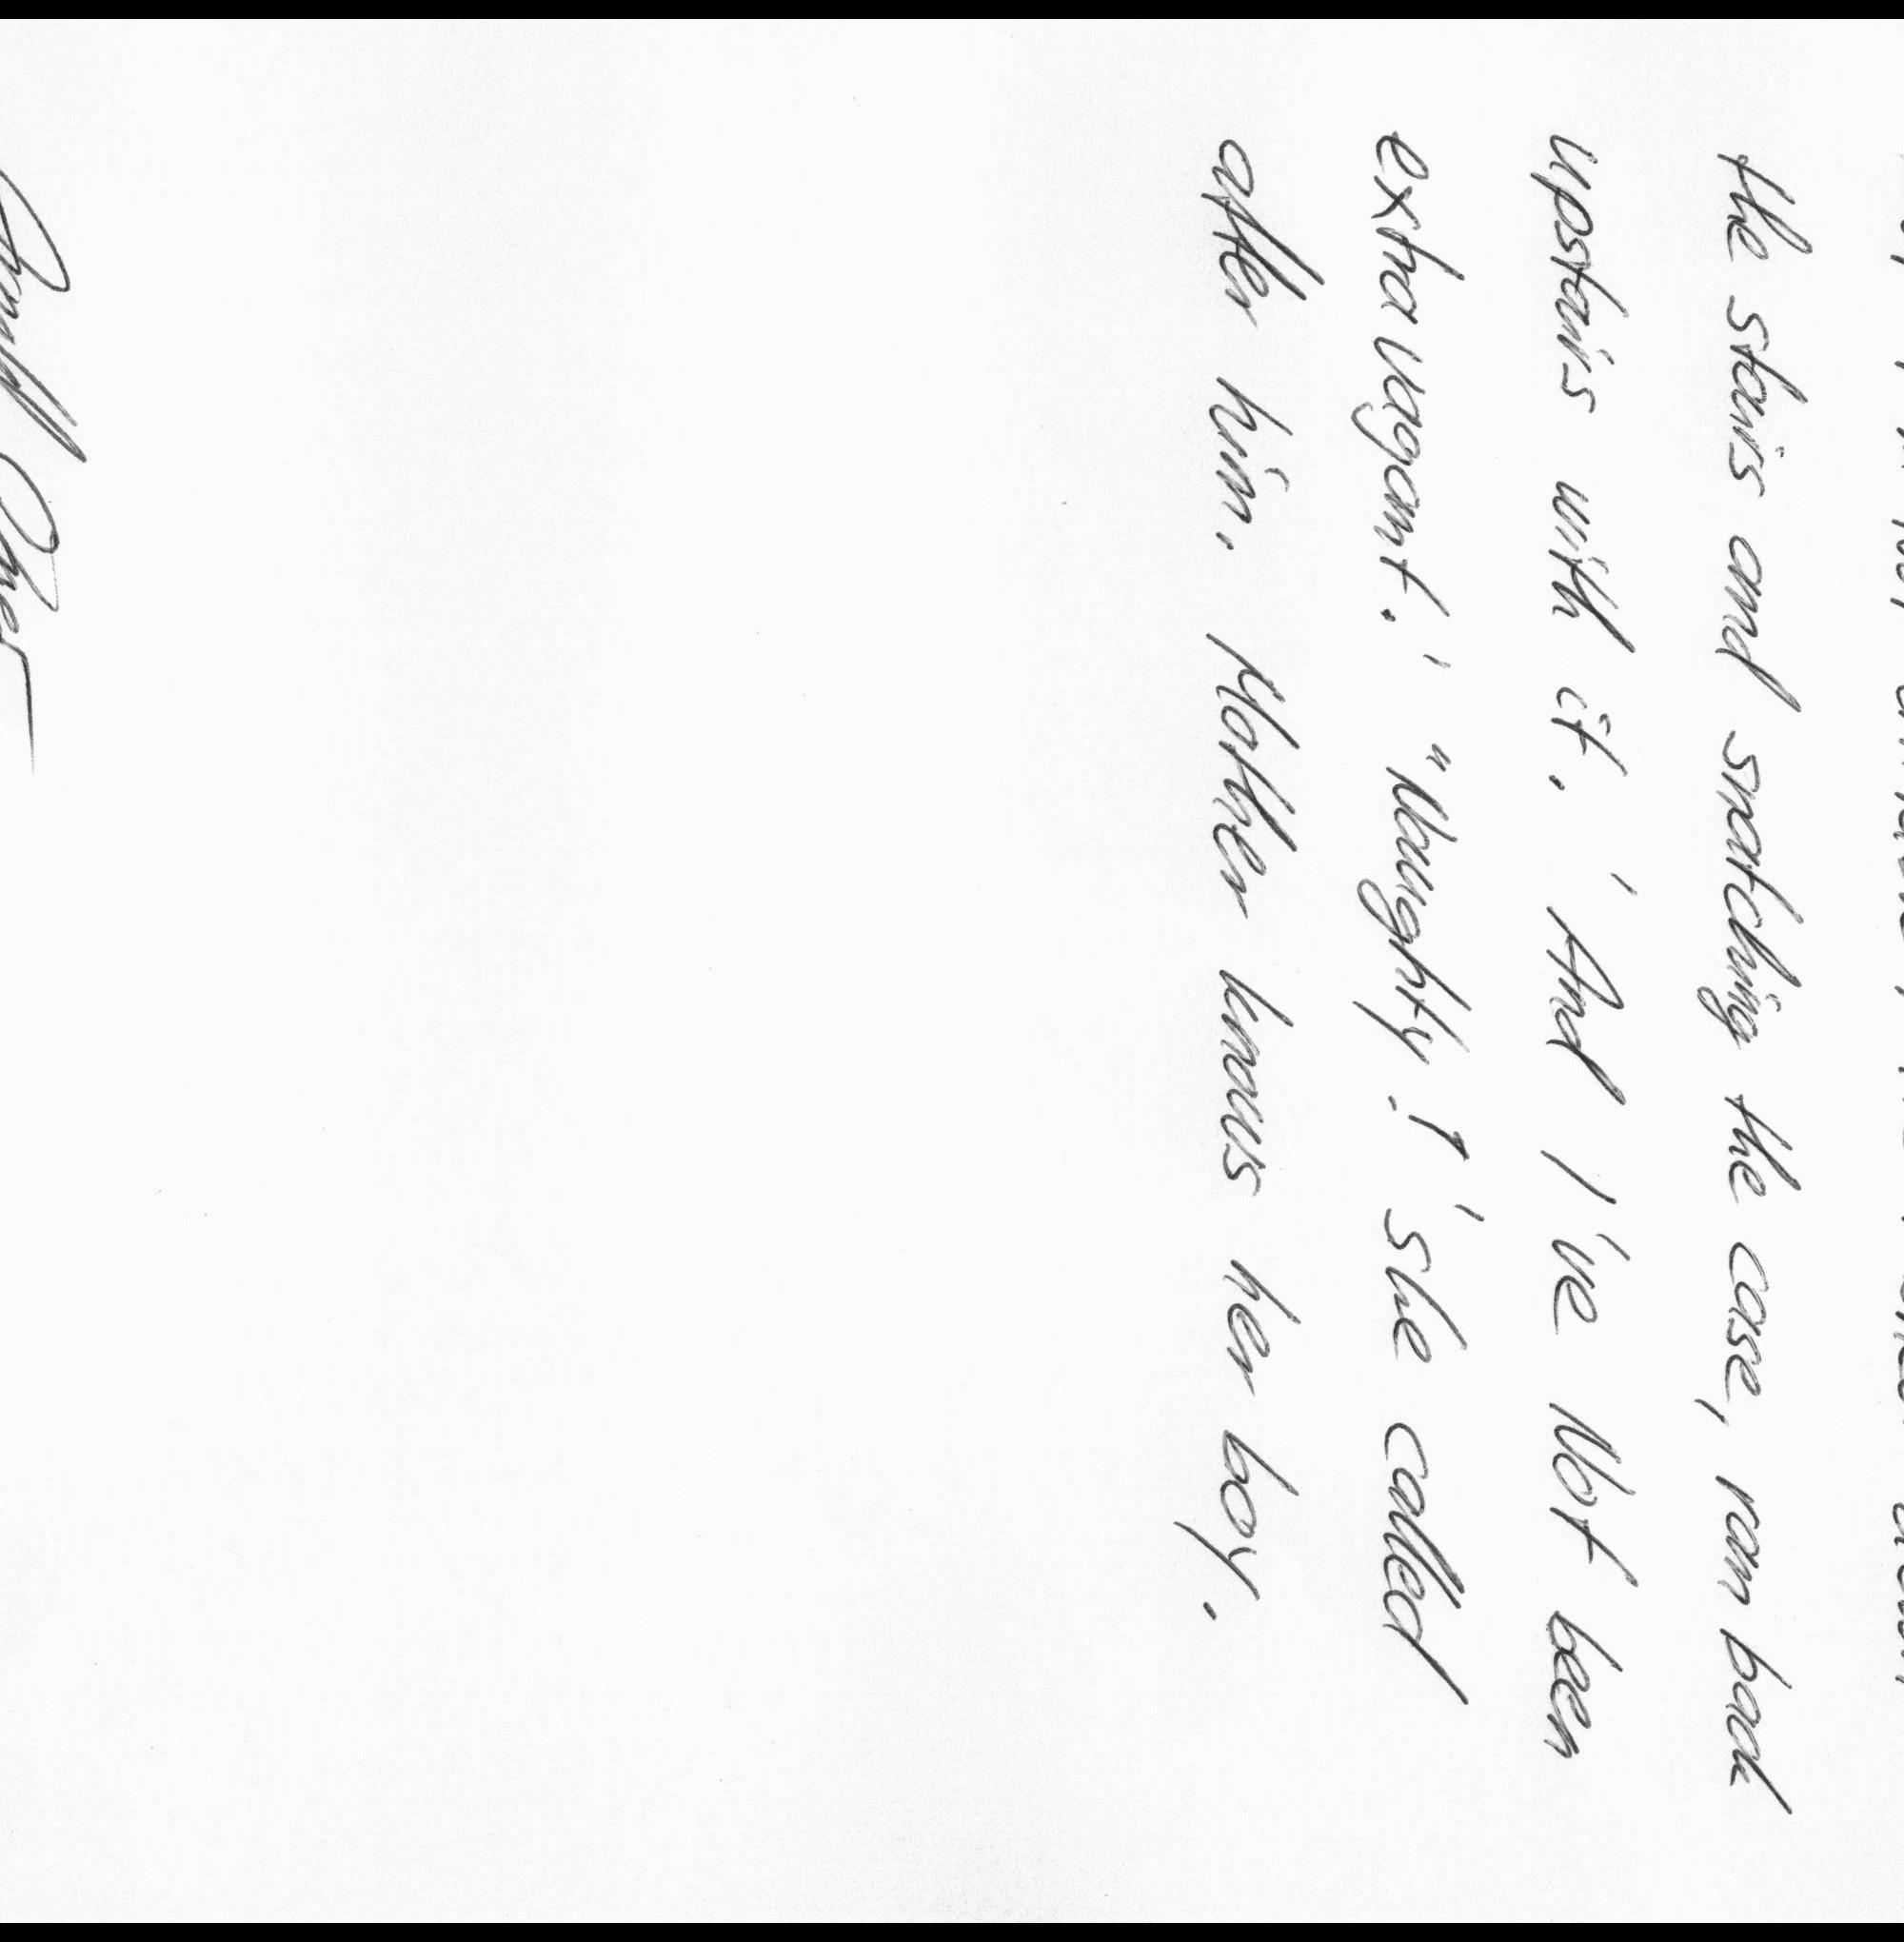 the stairs and snatching the case, ran back
upstairs with it. 'And I've Not been
extravagant.' "Naughty!' she called
after him. Mother knows her boy.